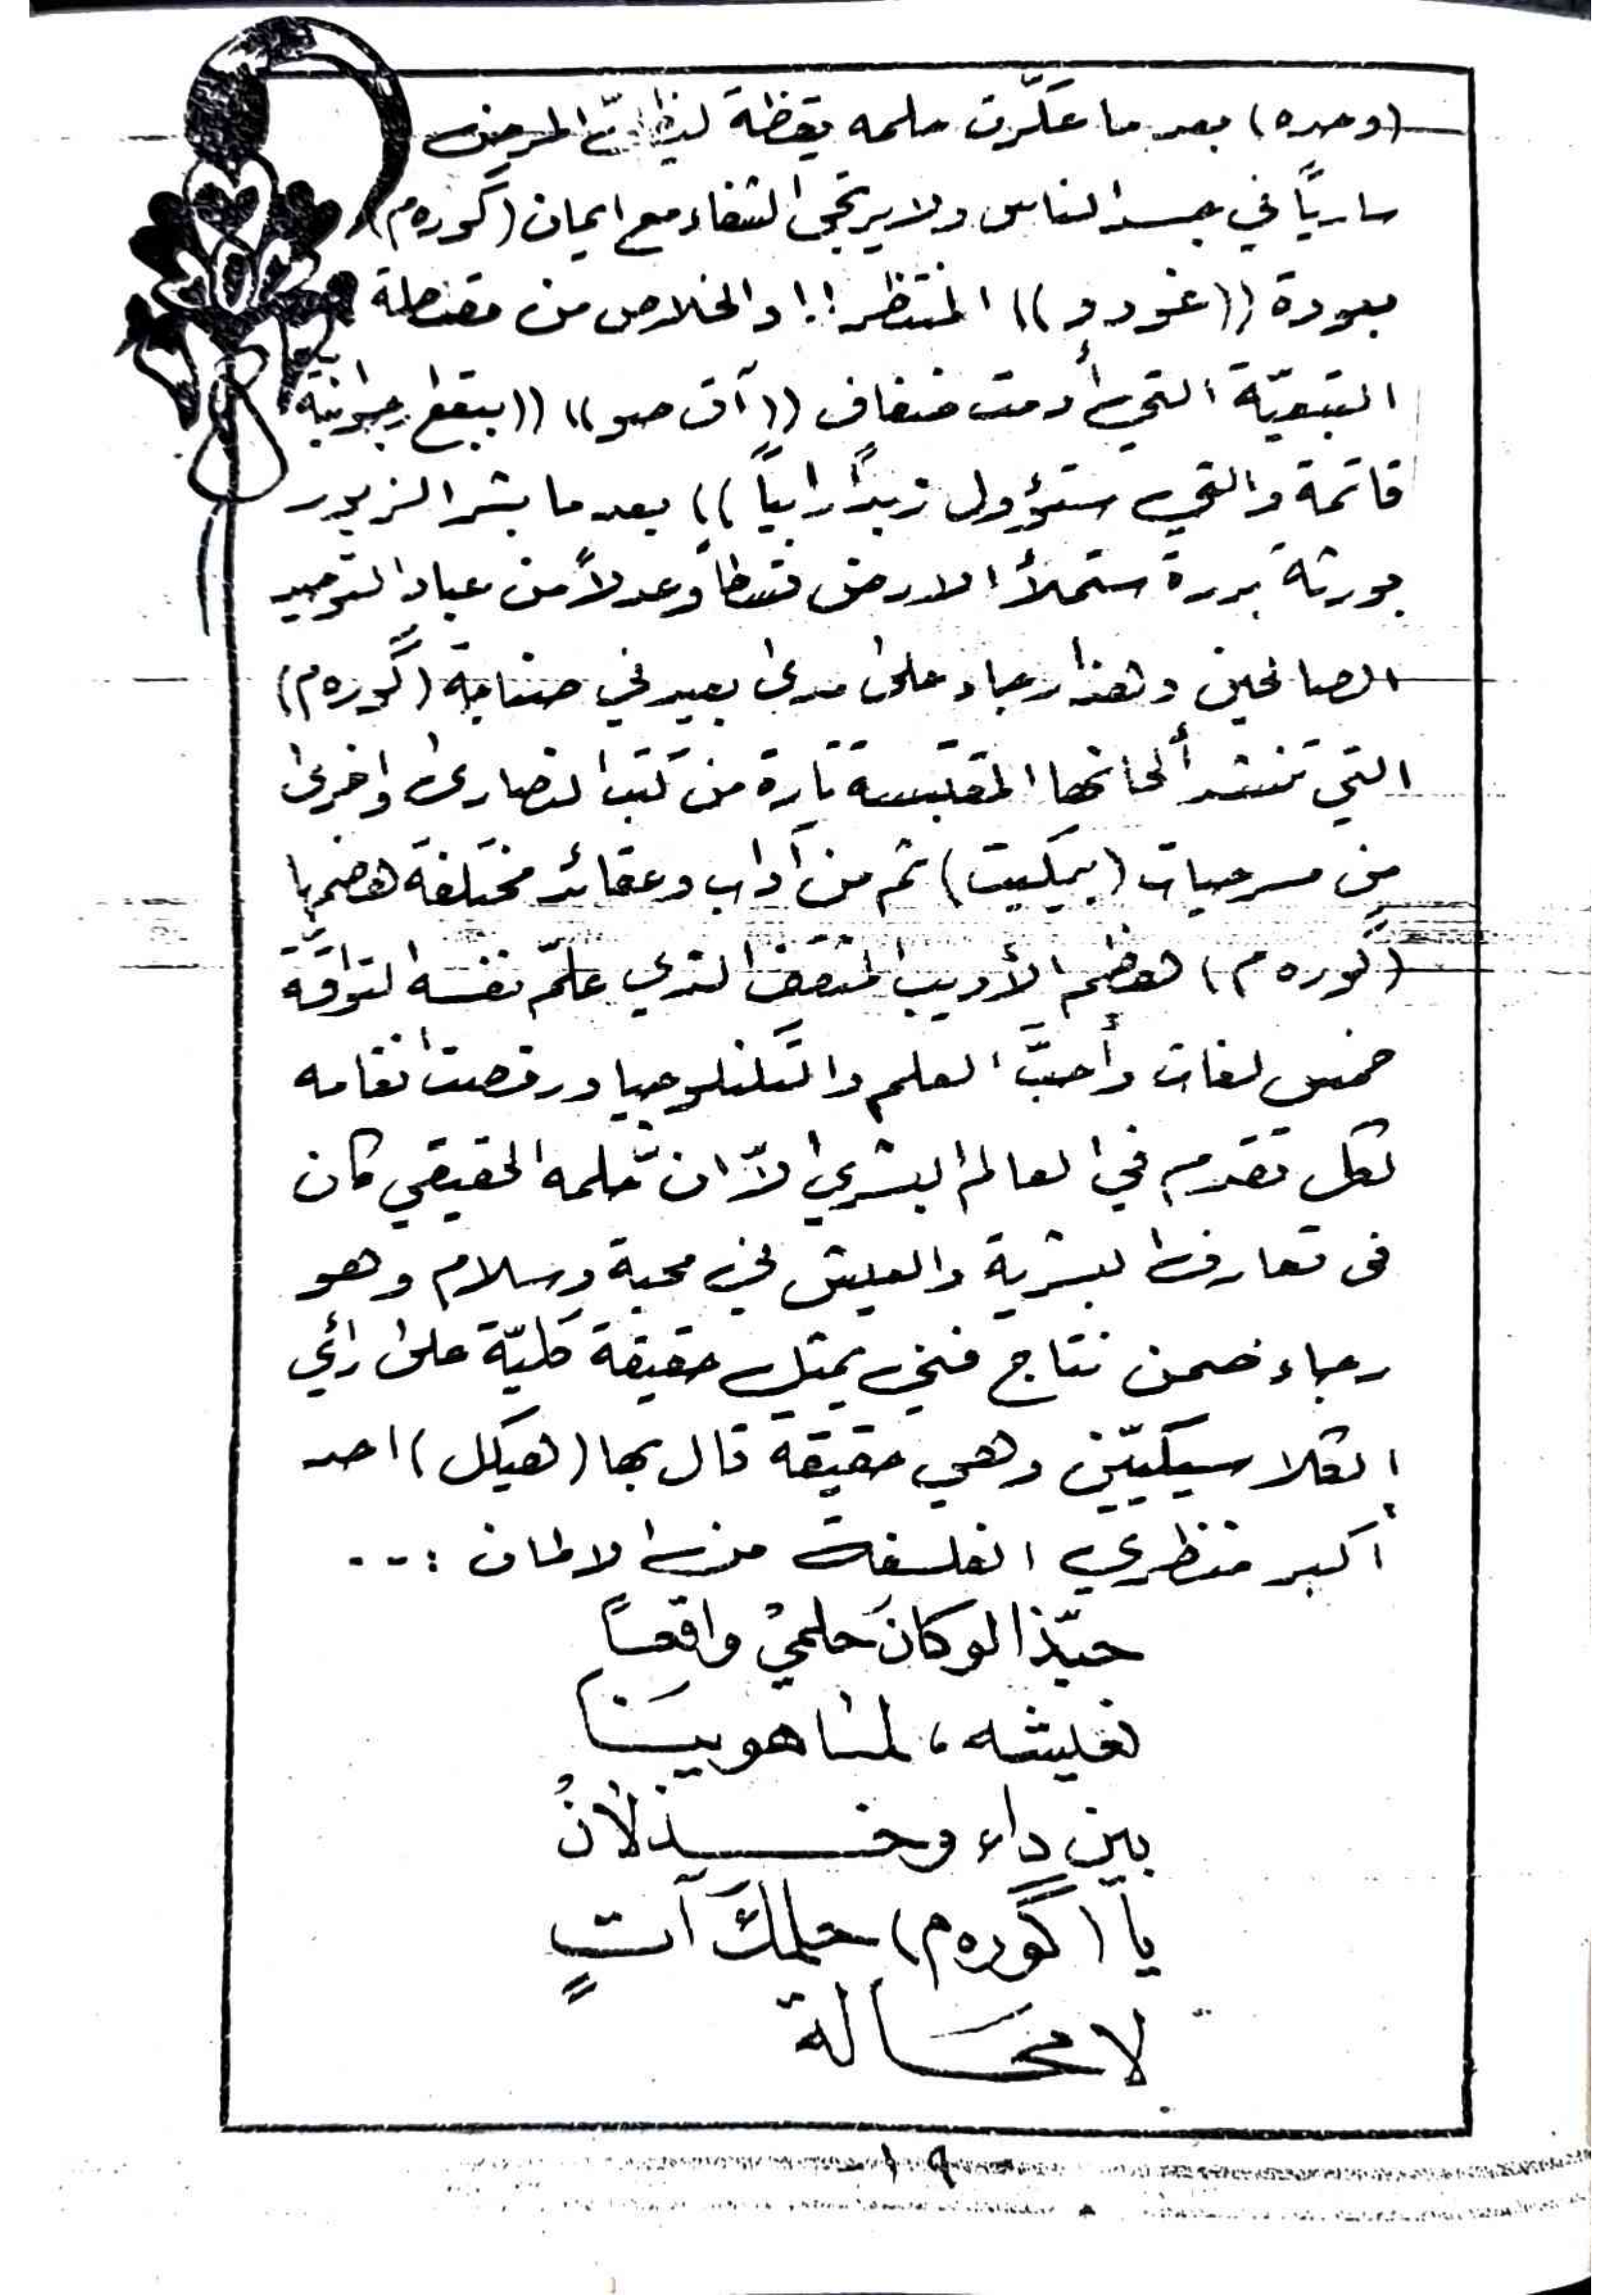 (وحده) بعد ما عكّرت حلمه يقظة ليظلّ المرض
ساريًا في جسد الناس ولا يرتجى الشفاء مع ايمان (گوره م)
بعودة ((غودو)) المنتظر!! والخلاص من مقصلة
التبعيّة التي أدمت ضفاف ((آق صو)) ((ببقع رجوانية
قاتمة والتي ستؤول زبدًا رابياً)) بعد ما بشر الزبور
بورثة بررة ستملأ الارض قسطاً وعدلاً من عباد التوحيد
الصالحين وهذا رجاء على مدى بعيد في صناجة (گوره م)
التي تنشد ألحانها المقتبسة تارة من كتب النصارى واخرى
من مسرحيات (بيكيت) ثم من آداب وعقائد مختلفة هضمها
(گوره م) هضم الأديب المثقف الذي علّم نفسه التواقة
خمس لغات وأحبَّ العلم والتكنلوجيا ورقصت انغامه
لكل تقدم في العالم البشري الاّ ان حلمه الحقيقي كان
في تعارف البشرية والعيش في محبة وسلام وهو
رجاء ضمن نتاج فني يمثل حقيقة كليّة على رأي
الكلاسيكيّين وهي حقيقة قال بها (هيكل) احد
أكبر منظري الفلسفة من الالمان :...
حبّذا لو كانَ حلميْ واقعاً
نعيشه، لمَا هوينَا
بين داء وخذلانُ
يا (گوره م) حلمكَ آتٍ
لا محَالة
١٩